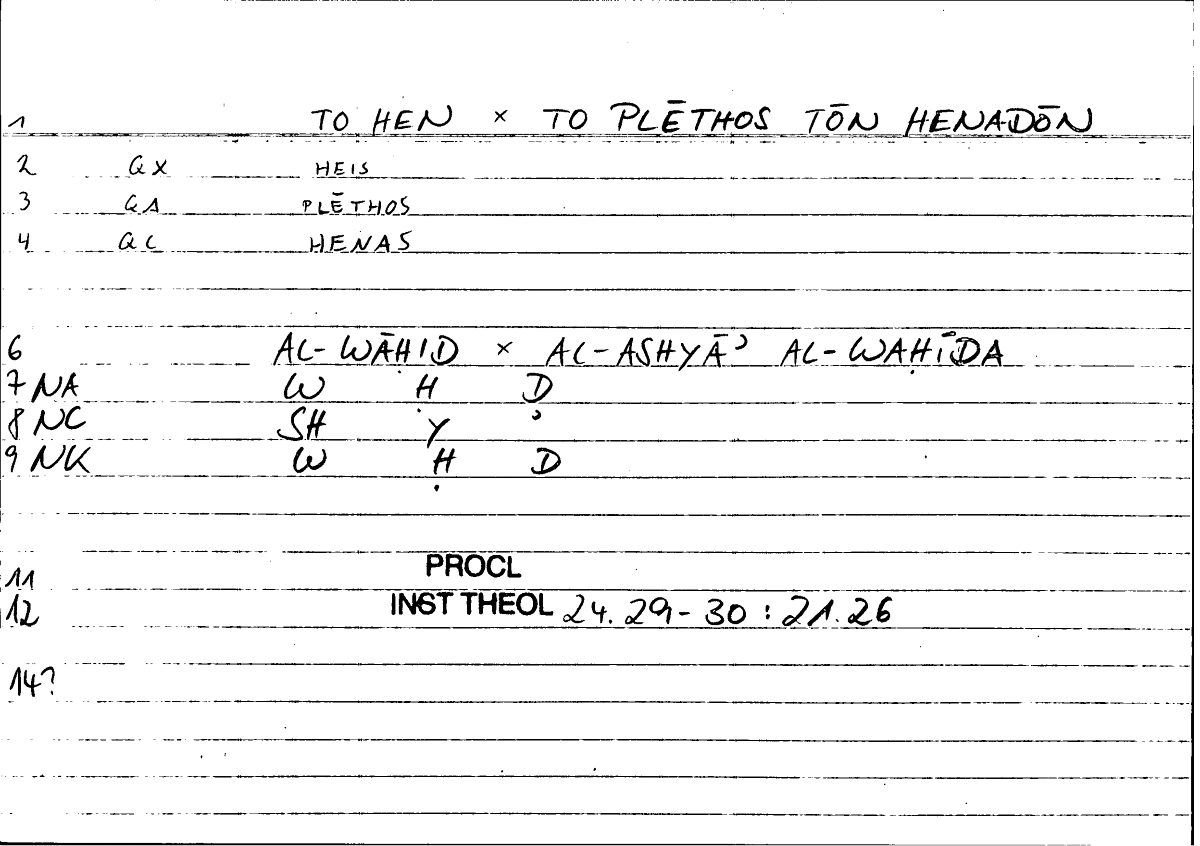 1 TO HEN × TO PLĒTHOS TŌN HENADŌN
2 QX HEIS
3 QA PLĒTHOS
4 QC HENAS
6 AL-WĀḤID × AL-ASHYĀʾ AL-WAḤĪDA
7 NA W Ḥ D
8 NC SH Y ʾ
9 NK W Ḥ D
11 PROCL
12 INST THEOL 24.29-30 : 21.26
14?